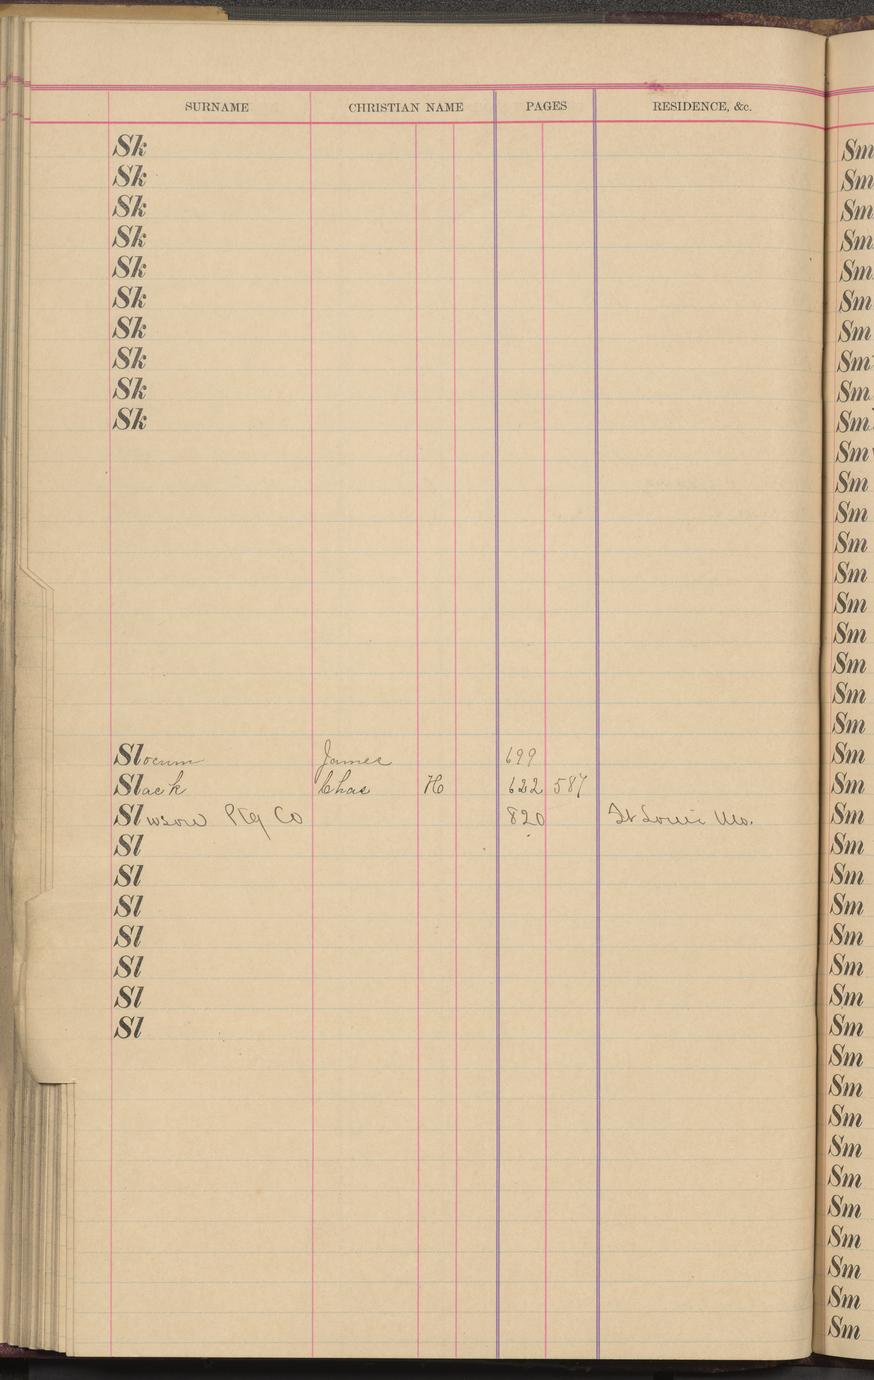 SURNAME CHRISTIAN NAME PAGES RESIDENCE, &c.
Sk
Sk
Sk
Sk
Sk
Sk
Sk
Sk
Sk
Sk
Slocum James 699
Slack Chas H 622 587
Slwson Ptg Co 820 St Louis Mo.
Sl
Sl
Sl
Sl
Sl
Sl
Sl
Sm
Sm
Sm
Sm
Sm
Sm
Sm
Sm
Sm
Sm
Sm
Sm
Sm
Sm
Sm
Sm
Sm
Sm
Sm
Sm
Sm
Sm
Sm
Sm
Sm
Sm
Sm
Sm
Sm
Sm
Sm
Sm
Sm
Sm
Sm
Sm
Sm
Sm
Sm
Sm